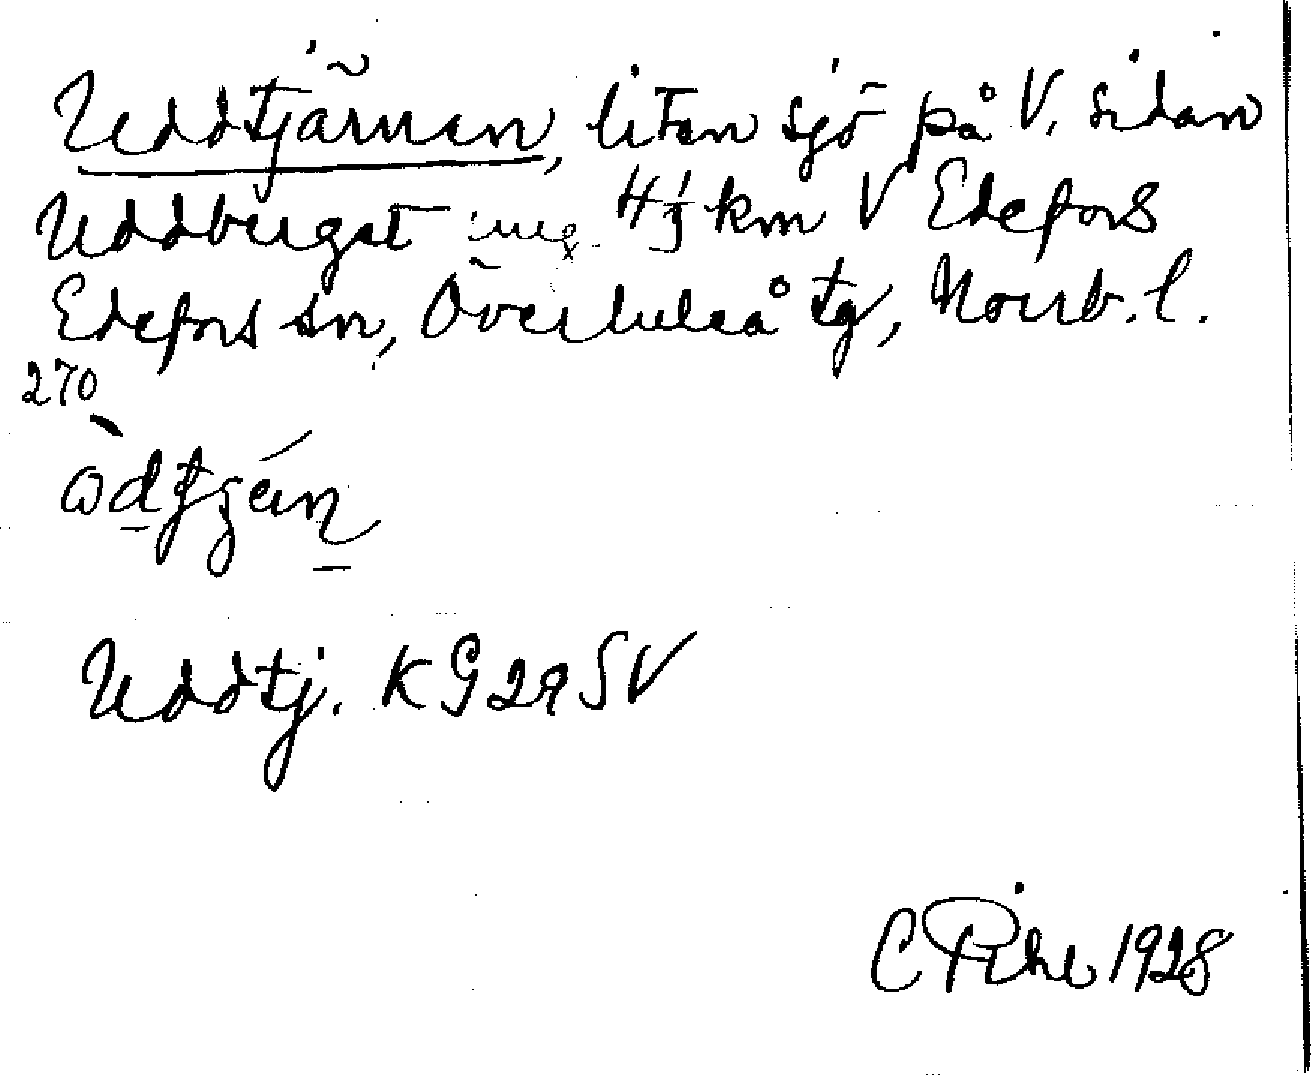 Uddtjärnen, liten sjö på V. sidan
Uddberget ung. 4½ km V Edefors
Edefors sn, Överluleå tg, Norrb. l.
270
Uddtj. KG 29 SV
C Pihl 1928